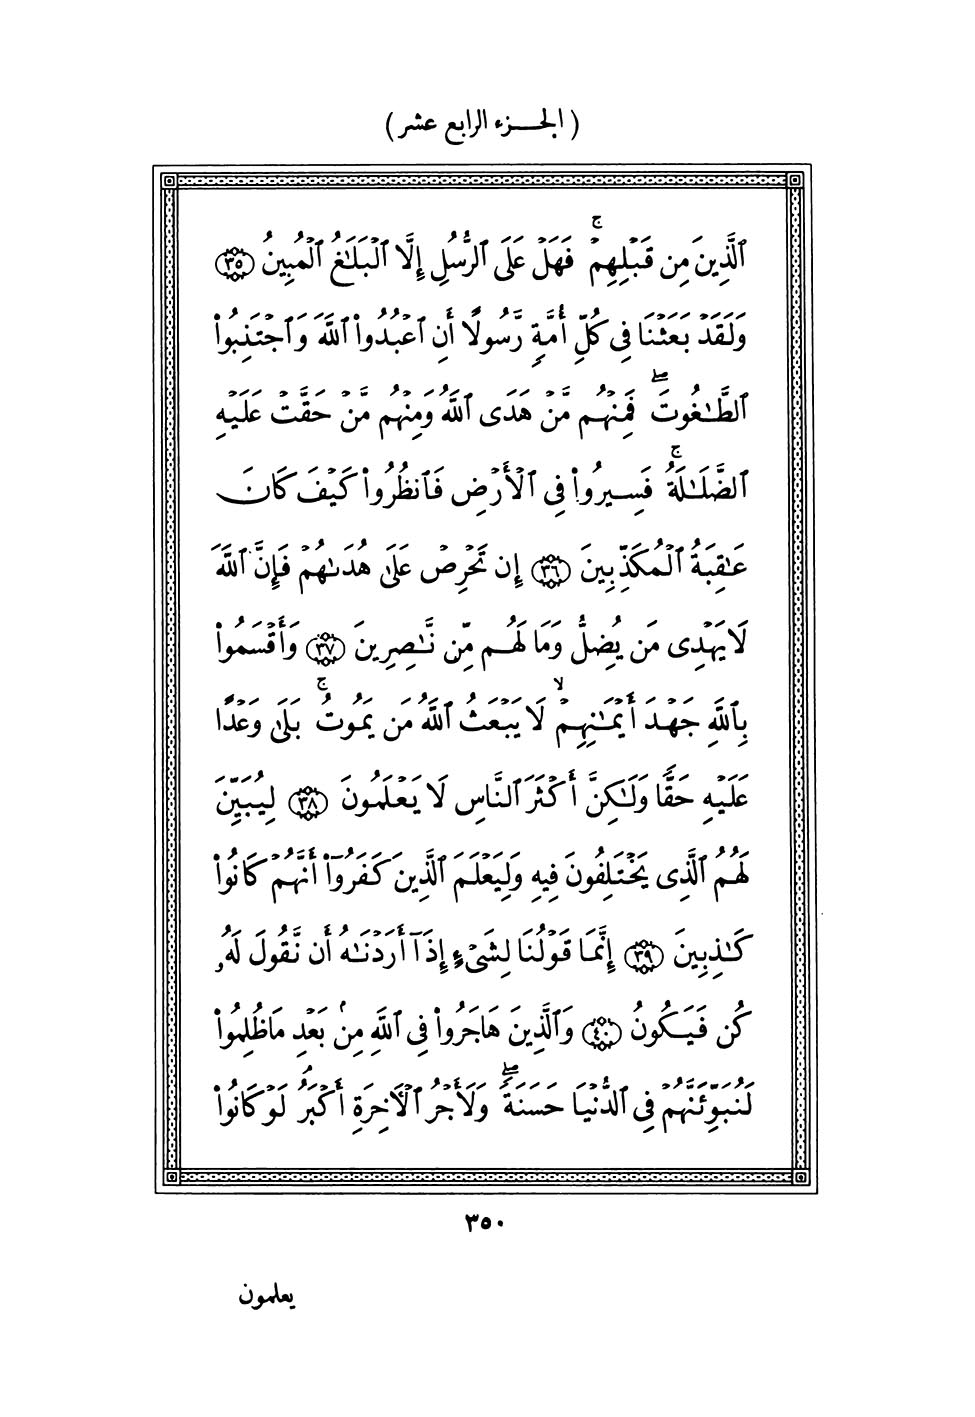 ( الجزء الرابع عشر )
ٱلَّذِينَ مِن قَبْلِهِمْ ۚ فَهَلْ عَلَى ٱلرُّسُلِ إِلَّا ٱلْبَلَٰغُ ٱلْمُبِينُ ٣٥
وَلَقَدْ بَعَثْنَا فِى كُلِّ أُمَّةٍ رَّسُولًا أَنِ ٱعْبُدُوا۟ ٱللَّهَ وَٱجْتَنِبُوا۟
ٱلطَّٰغُوتَ ۖ فَمِنْهُم مَّنْ هَدَى ٱللَّهُ وَمِنْهُم مَّنْ حَقَّتْ عَلَيْهِ
ٱلضَّلَٰلَةُ ۚ فَسِيرُوا۟ فِى ٱلْأَرْضِ فَٱنظُرُوا۟ كَيْفَ كَانَ
عَٰقِبَةُ ٱلْمُكَذِّبِينَ ٣٦ إِن تَحْرِصْ عَلَىٰ هُدَىٰهُمْ فَإِنَّ ٱللَّهَ
لَا يَهْدِى مَن يُضِلُّ وَمَا لَهُم مِّن نَّٰصِرِينَ ٣٧ وَأَقْسَمُوا۟
بِٱللَّهِ جَهْدَ أَيْمَٰنِهِمْ ۙ لَا يَبْعَثُ ٱللَّهُ مَن يَمُوتُ ۚ بَلَىٰ وَعْدًا
عَلَيْهِ حَقًّا وَلَٰكِنَّ أَكْثَرَ ٱلنَّاسِ لَا يَعْلَمُونَ ٣٨ لِيُبَيِّنَ
لَهُمُ ٱلَّذِى يَخْتَلِفُونَ فِيهِ وَلِيَعْلَمَ ٱلَّذِينَ كَفَرُوٓا۟ أَنَّهُمْ كَانُوا۟
كَٰذِبِينَ ٣٩ إِنَّمَا قَوْلُنَا لِشَىْءٍ إِذَآ أَرَدْنَٰهُ أَن نَّقُولَ لَهُۥ
كُن فَيَكُونُ ٤٠ وَٱلَّذِينَ هَاجَرُوا۟ فِى ٱللَّهِ مِنۢ بَعْدِ مَا ظُلِمُوا۟
لَنُبَوِّئَنَّهُمْ فِى ٱلدُّنْيَا حَسَنَةً ۖ وَلَأَجْرُ ٱلْأَخِرَةِ أَكْبَرُ ۚ لَوْ كَانُوا۟
٣٥٠
يعلمون